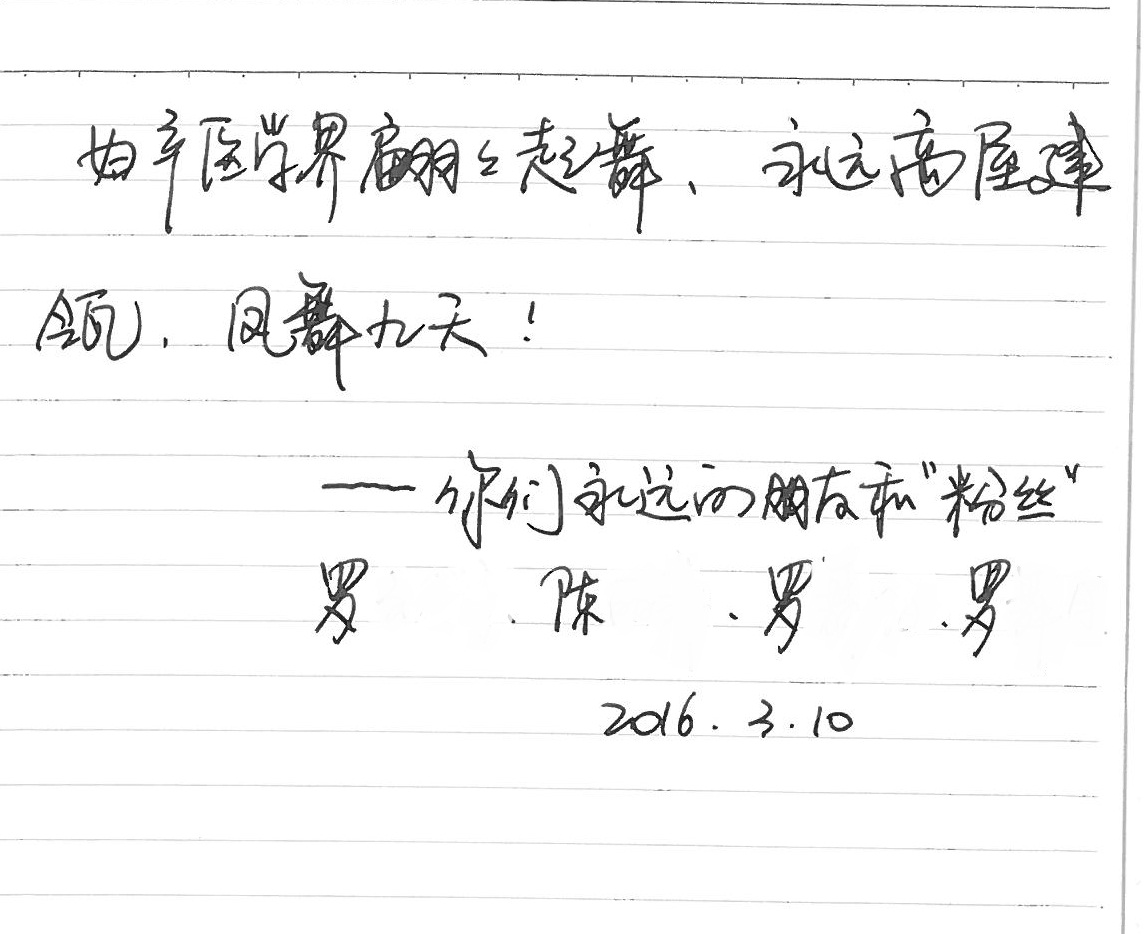 妇产医学界翩々起舞、永远高屋建
瓴,凤舞九天!
——你们永远的朋友和“粉丝”
罗 . 陈 . 罗 . 罗
2016.3.10